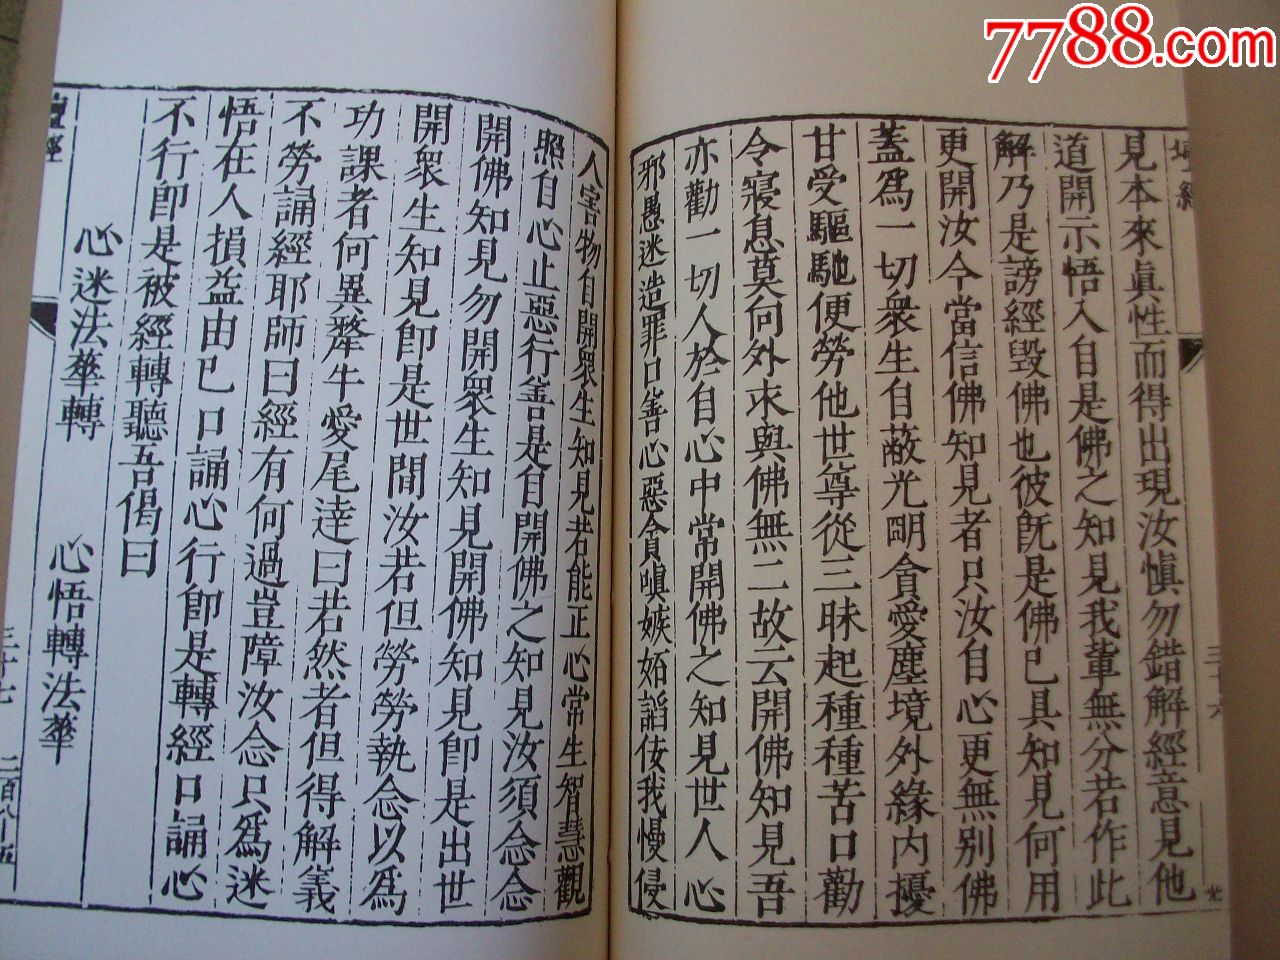 7788.com
壇經
三十六
見本來眞性而得出現汝愼勿錯解經意見他
道開示悟入自是佛之知見我輩無分若作此
解乃是謗經毀佛也彼旣是佛已具知見何用
更開汝今當信佛知見者只汝自心更無别佛
蓋爲一切衆生自蔽光明貪愛塵境外緣内擾
甘受驅馳便勞他世尊從三昧起種種苦口勸
令寢息莫向外求與佛無二故云開佛知見吾
亦勸一切人於自心中常開佛之知見世人心
邪愚迷造罪口善心惡貪嗔嫉妬諂佞我慢侵
人害物自開衆生知見若能正心常生智慧觀
照自心止惡行善是自開佛之知見汝須念念
開佛知見勿開衆生知見開佛知見卽是出世
開衆生知見卽是世間汝若但勞勞執念以爲
功課者何異犛牛愛尾達曰若然者但得解義
不勞誦經耶師曰經有何過豈障汝念只爲迷
悟在人損益由已口誦心行卽是轉經口誦心
不行卽是被經轉聽吾偈曰
心迷法華轉 心悟轉法華
壇經
三十七
二百八十五